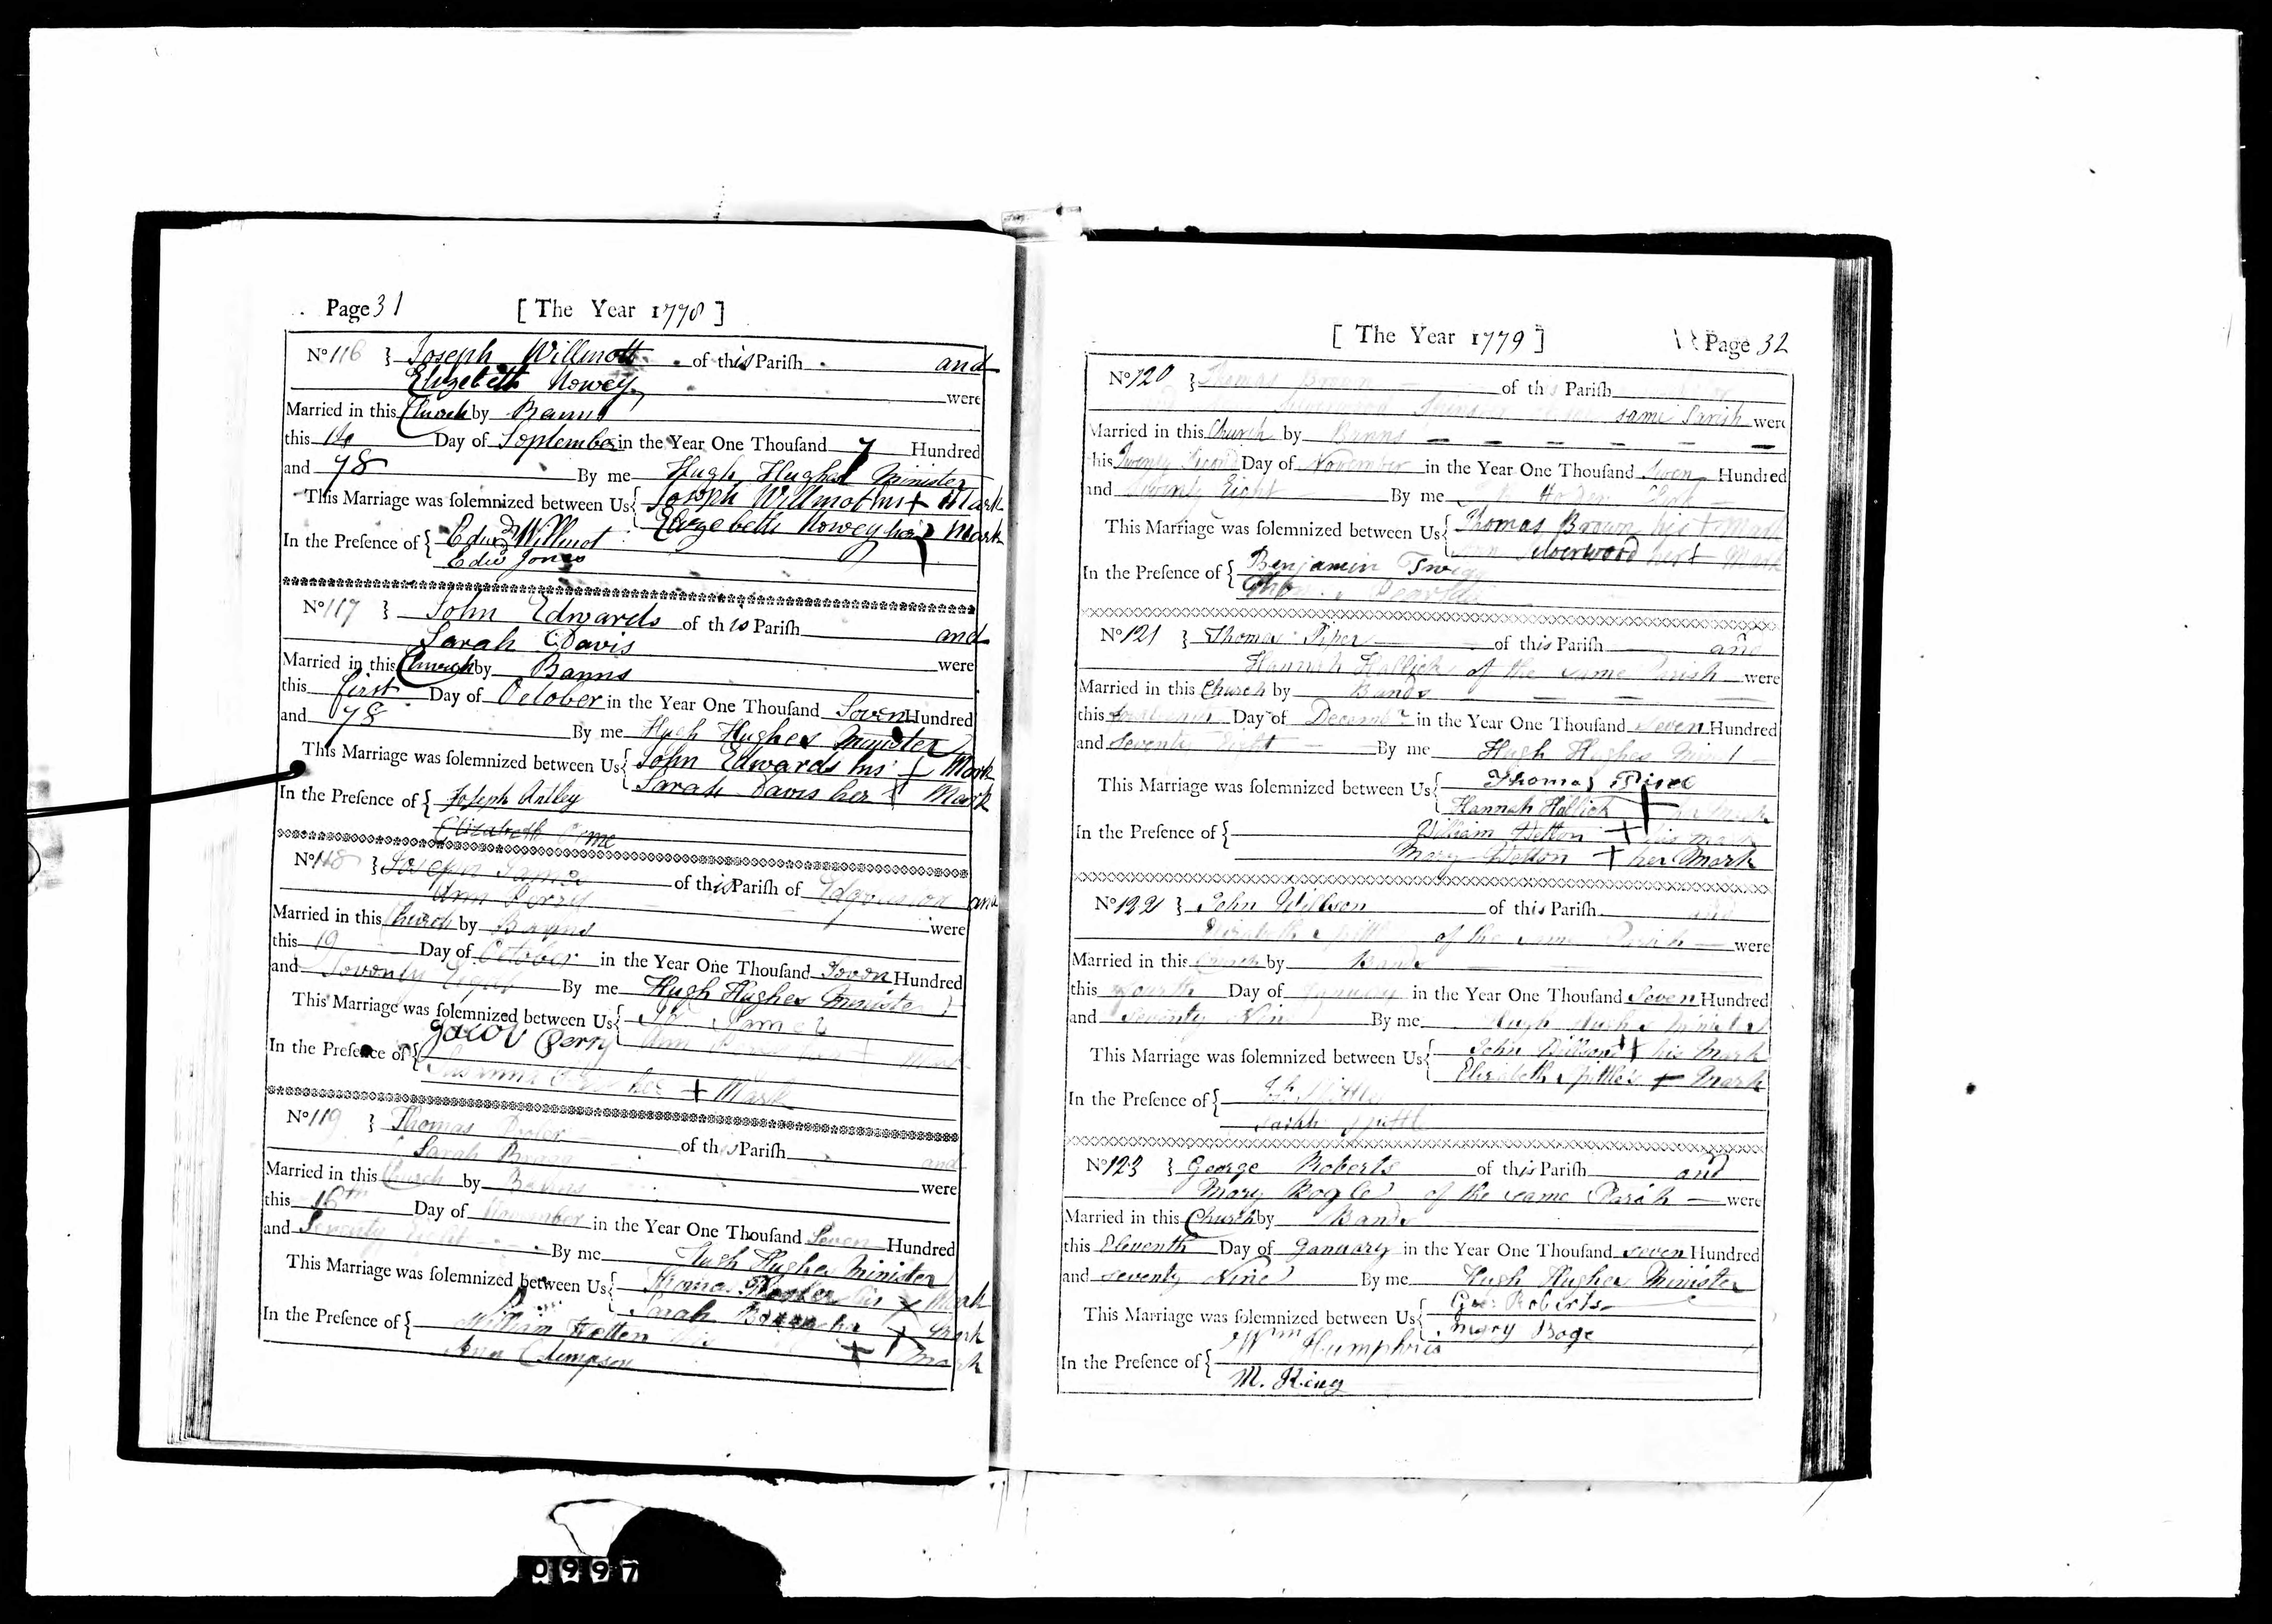 Page 31 [ The Year 1778 ]
No 116 } Joseph Willmott of this Parish and
Elizebeth Nowey were
Married in this Church by Banns
this 14 Day of September in the Year One Thousand 7 Hundred
and 78 By me Hugh Hughes Minister
This Marriage was solemnized between Us { Joseph Willmot his + Mark
Elizebeth Nowey her + Mark
In the Presence of { Edwd Willmot
Edwd Jones
No 117 } John Edwards of this Parish and
Sarah Davis were
Married in this Church by Banns
this first Day of October in the Year One Thousand Seven Hundred
and 78 By me Hugh Hughes Minister
This Marriage was solemnized between Us { John Edwards his + Mark
Sarah Davis her + Mark
In the Presence of { Joseph Antley
Elizabeth Orme
No 118 } Joseph James of this Parish of and
Ann Perry were
Married in this Church by Banns
this 19 Day of October in the Year One Thousand Seven Hundred
and Seventy Eight By me Hugh Hughes Minister
This Marriage was solemnized between Us { James
Jacov Perry Ann
In the Presence of {
Susanna her + Mark
No 119 } Thomas of this Parish and
Sarah were
Married in this Church by Banns
this 16th Day of November in the Year One Thousand Seven Hundred
and Seventy Eight By me Hugh Hughes Minister
This Marriage was solemnized between Us { Thomas his x Mark
Sarah her + Mark
In the Presence of { William Hetton his + Mark
Ann Clempson
[ The Year 1779 ] Page 32
No 120 } Thomas Brown of this Parish
Silverwood Spinster same Parish were
Married in this Church by Banns
this Twenty Second Day of November in the Year One Thousand Seven Hundred
and Seventy Eight By me
This Marriage was solemnized between Us { Thomas Brown his + Mark
Ann Silverwood her + Mark
In the Presence of { Benjamin Twigg
No 121 } Thomas Piper of this Parish and
Hannah Hallick of the same Parish were
Married in this Church by Bands
this Day of Decembr in the Year One Thousand Seven Hundred
and Seventy Eight By me Hugh Hughes Minst
This Marriage was solemnized between Us { Thomas
Hannah Hallick + her Mark
In the Presence of { William Hetton + his Mark
Mary Hetton + her Mark
No 122 } John Willson of this Parish and
Elizabeth Spittle of the same Parish were
Married in this Church by Bands
this fourth Day of January in the Year One Thousand Seven Hundred
and Seventy Nine By me Hugh Hughes Minister
This Marriage was solemnized between Us { John Willson + his Mark
Elizabeth Spittle's + Mark
In the Presence of { Spittle
Sarah Spittle
No 123 } George Roberts of this Parish and
Mary of the same Parish were
Married in this Church by Bands
this Eleventh Day of January in the Year One Thousand seven Hundred
and seventy Nine By me Hugh Hughes Minister
This Marriage was solemnized between Us { Geo: Roberts
Mary Boge
In the Presence of { Wm Humphries
M. King
0997